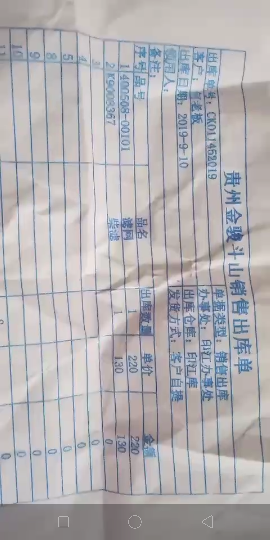 贵州金骏斗山销售出库单
单据类型：销售出库
出库单号：CK011452019
办事处：印江办事处
客户：老板
出库仓库：印江库
出库日期：2019-9-10
发货方式：客户自提
领用人：
备注：
序号 品号 品名 出库数量 单价 金额
1 400508-00101 滤网 1 220 220
2 K9008367 柴滤 1 130 130
3 0
4 0
5 0
8 0
9 0
10 0
11 0